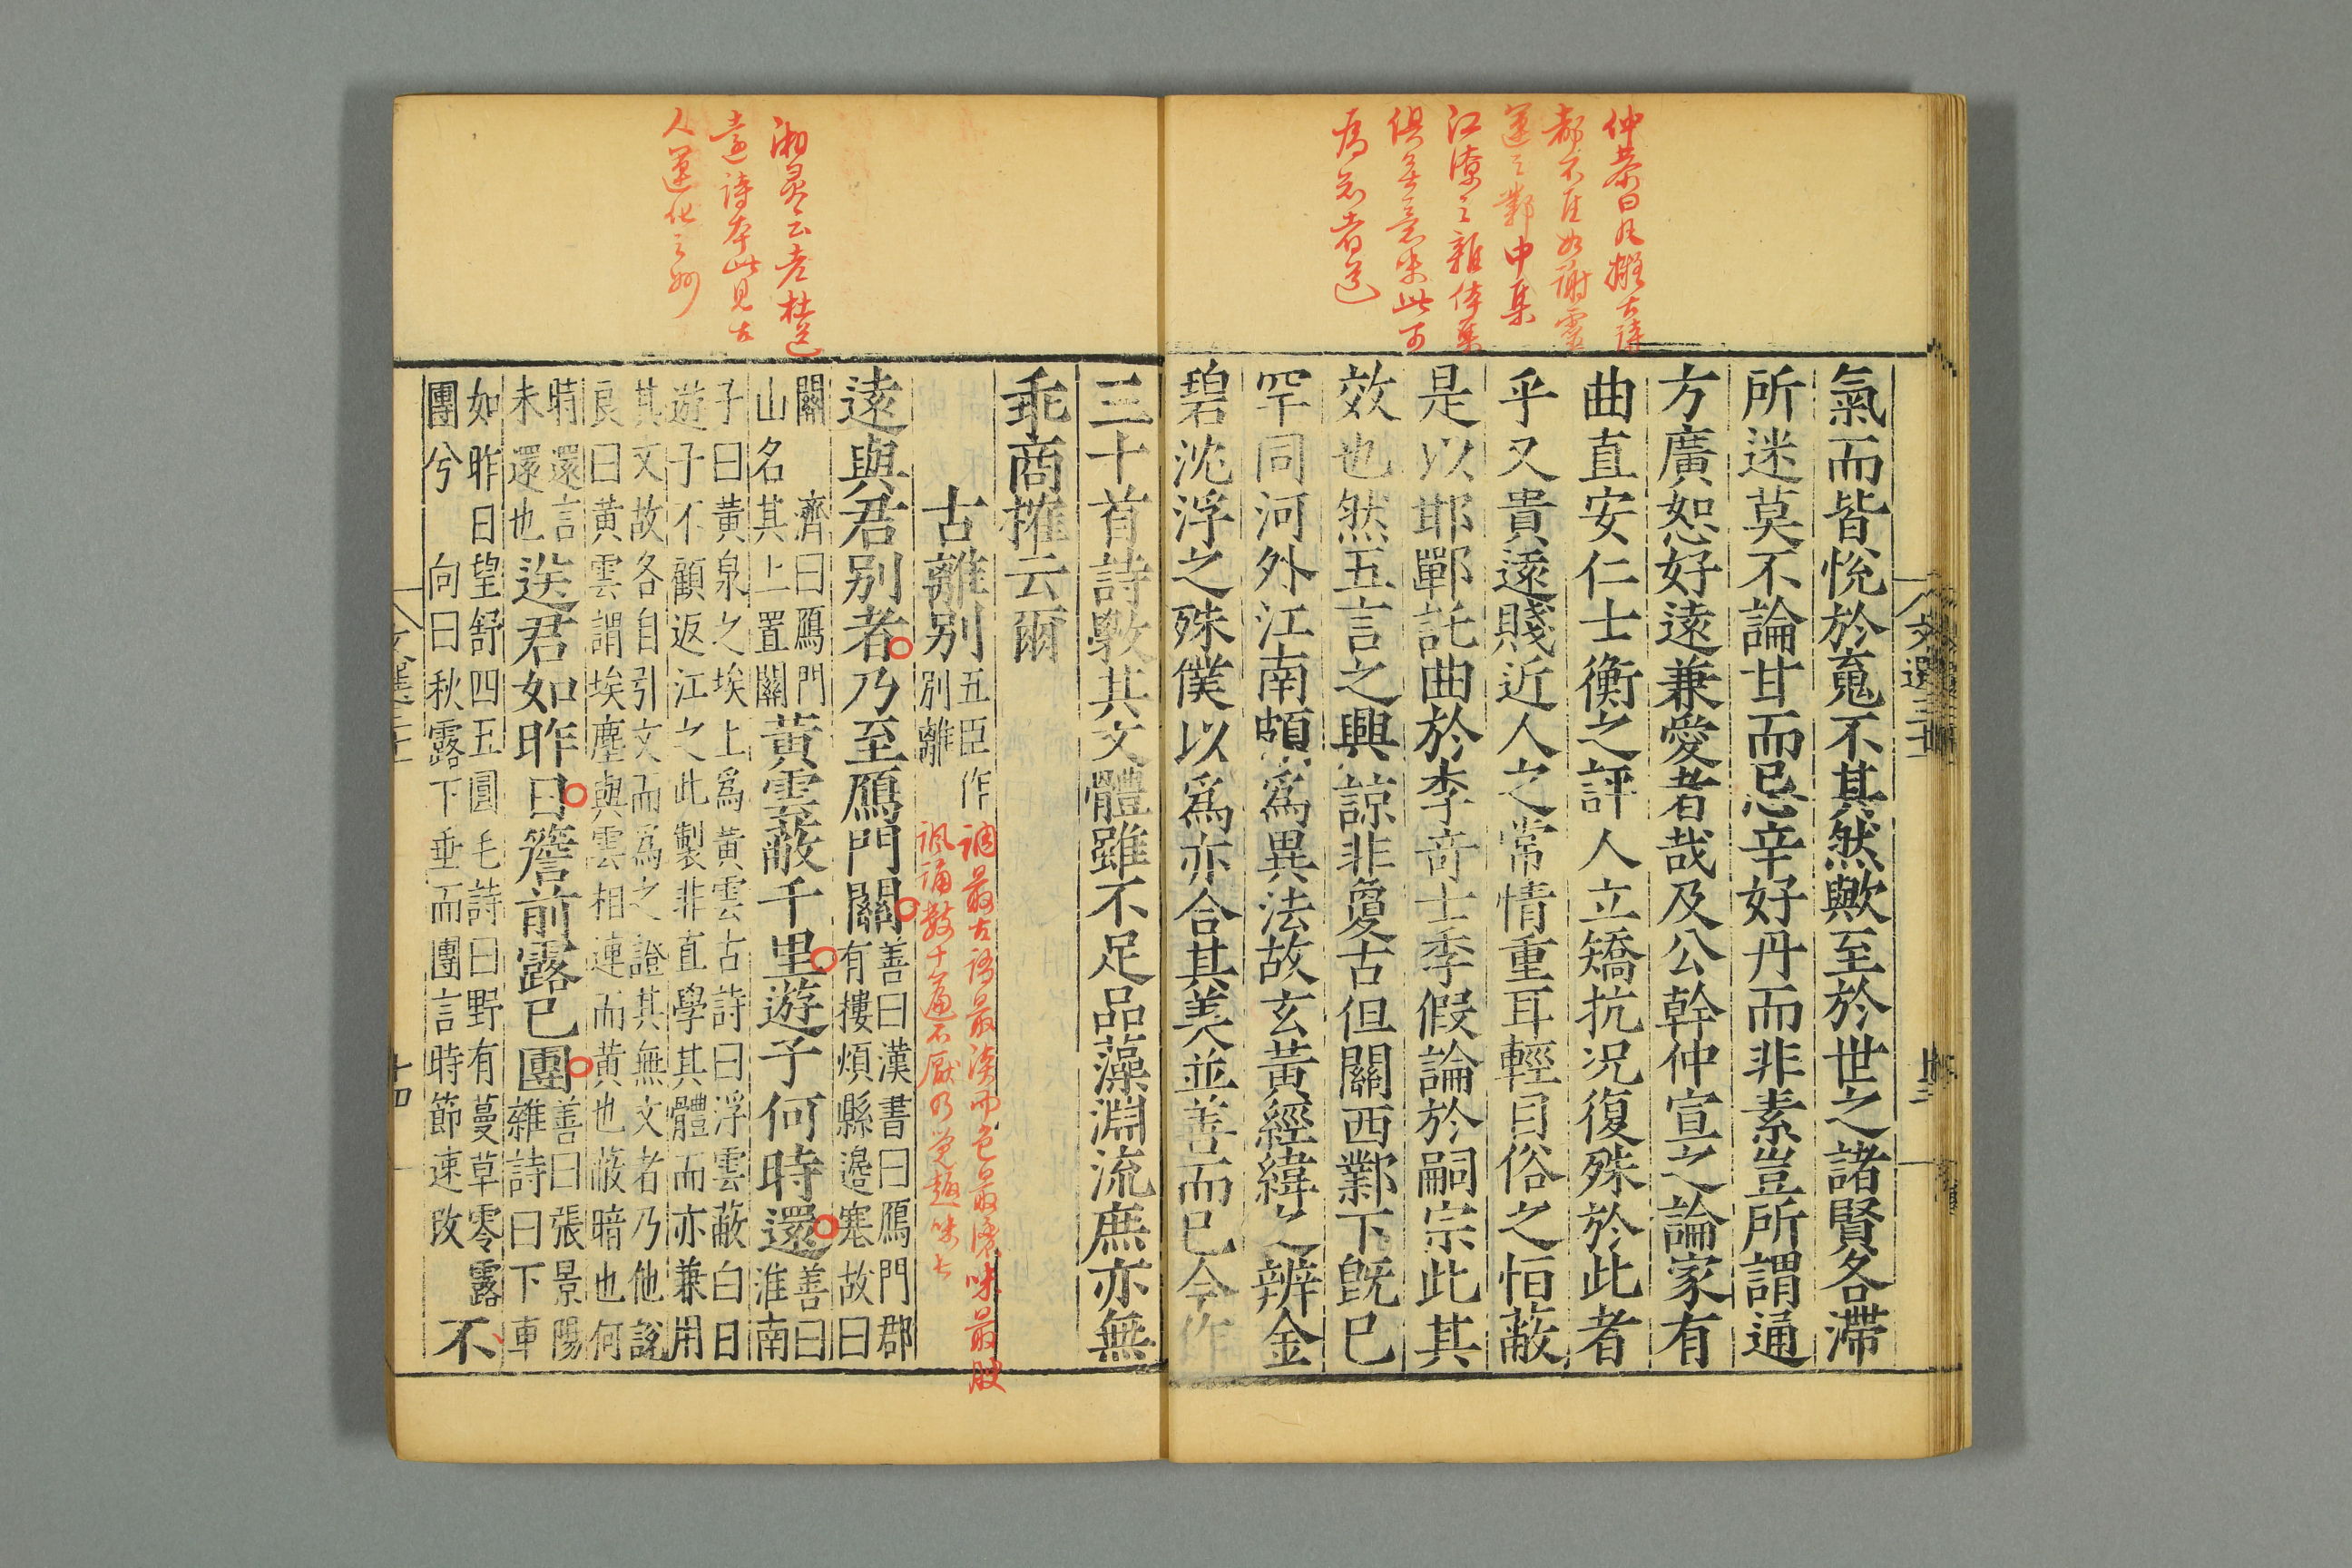 仲恭曰凡擬古詩
都不在如謝靈
運之鄴中集
江淹之雜体集
俱無意味此可
為知者道
氣而皆悅於䰟不其然歟至於世之諸賢各滯
所迷莫不論甘而忌辛好丹而非素豈所謂通
方廣恕好遠兼愛者哉及公幹仲宣之論家有
曲直安仁士衡之評人立矯抗况復殊於此者
乎又貴遠賤近人之常情重耳輕目俗之恒蔽
是以邯鄲託曲於李竒士季假論於嗣宗此其
效也然五言之興諒非敻古但關西鄴下旣已
罕同河外江南頗爲異法故玄黃經緯之辨金
碧沈浮之殊僕以爲亦合其美並善而已今作
湘靈云老杜送
遠詩本此見古
人運化之妙
三十首詩斅其文體雖不足品藻淵流庶亦無
乖商搉云爾
古離別
五臣作
別離
調最古語最淡而色最濃味最腴
諷誦數十遍不厭乃覺趣味長
遠與君別者乃至鴈門關
善曰漢書曰鴈門郡
有摟煩縣邉寒故曰
關　齊曰鴈門
山名其上置關
黃雲蔽千里遊子何時還
善曰
淮南
子曰黃泉之埃上爲黃雲古詩曰浮雲蔽白日
遊子不顧返江之此製非直學其體而亦兼用
其文故各自引文而爲之證其無文者乃他說
良曰黃雲謂埃塵與雲相連而黃也蔽暗也何
時還言
未還也
送君如昨日簷前露已團
善曰張景陽
雜詩曰下車
如昨日望舒四五圓毛詩曰野有蔓草零露
團兮　向曰秋露下垂而團言時節速改
不